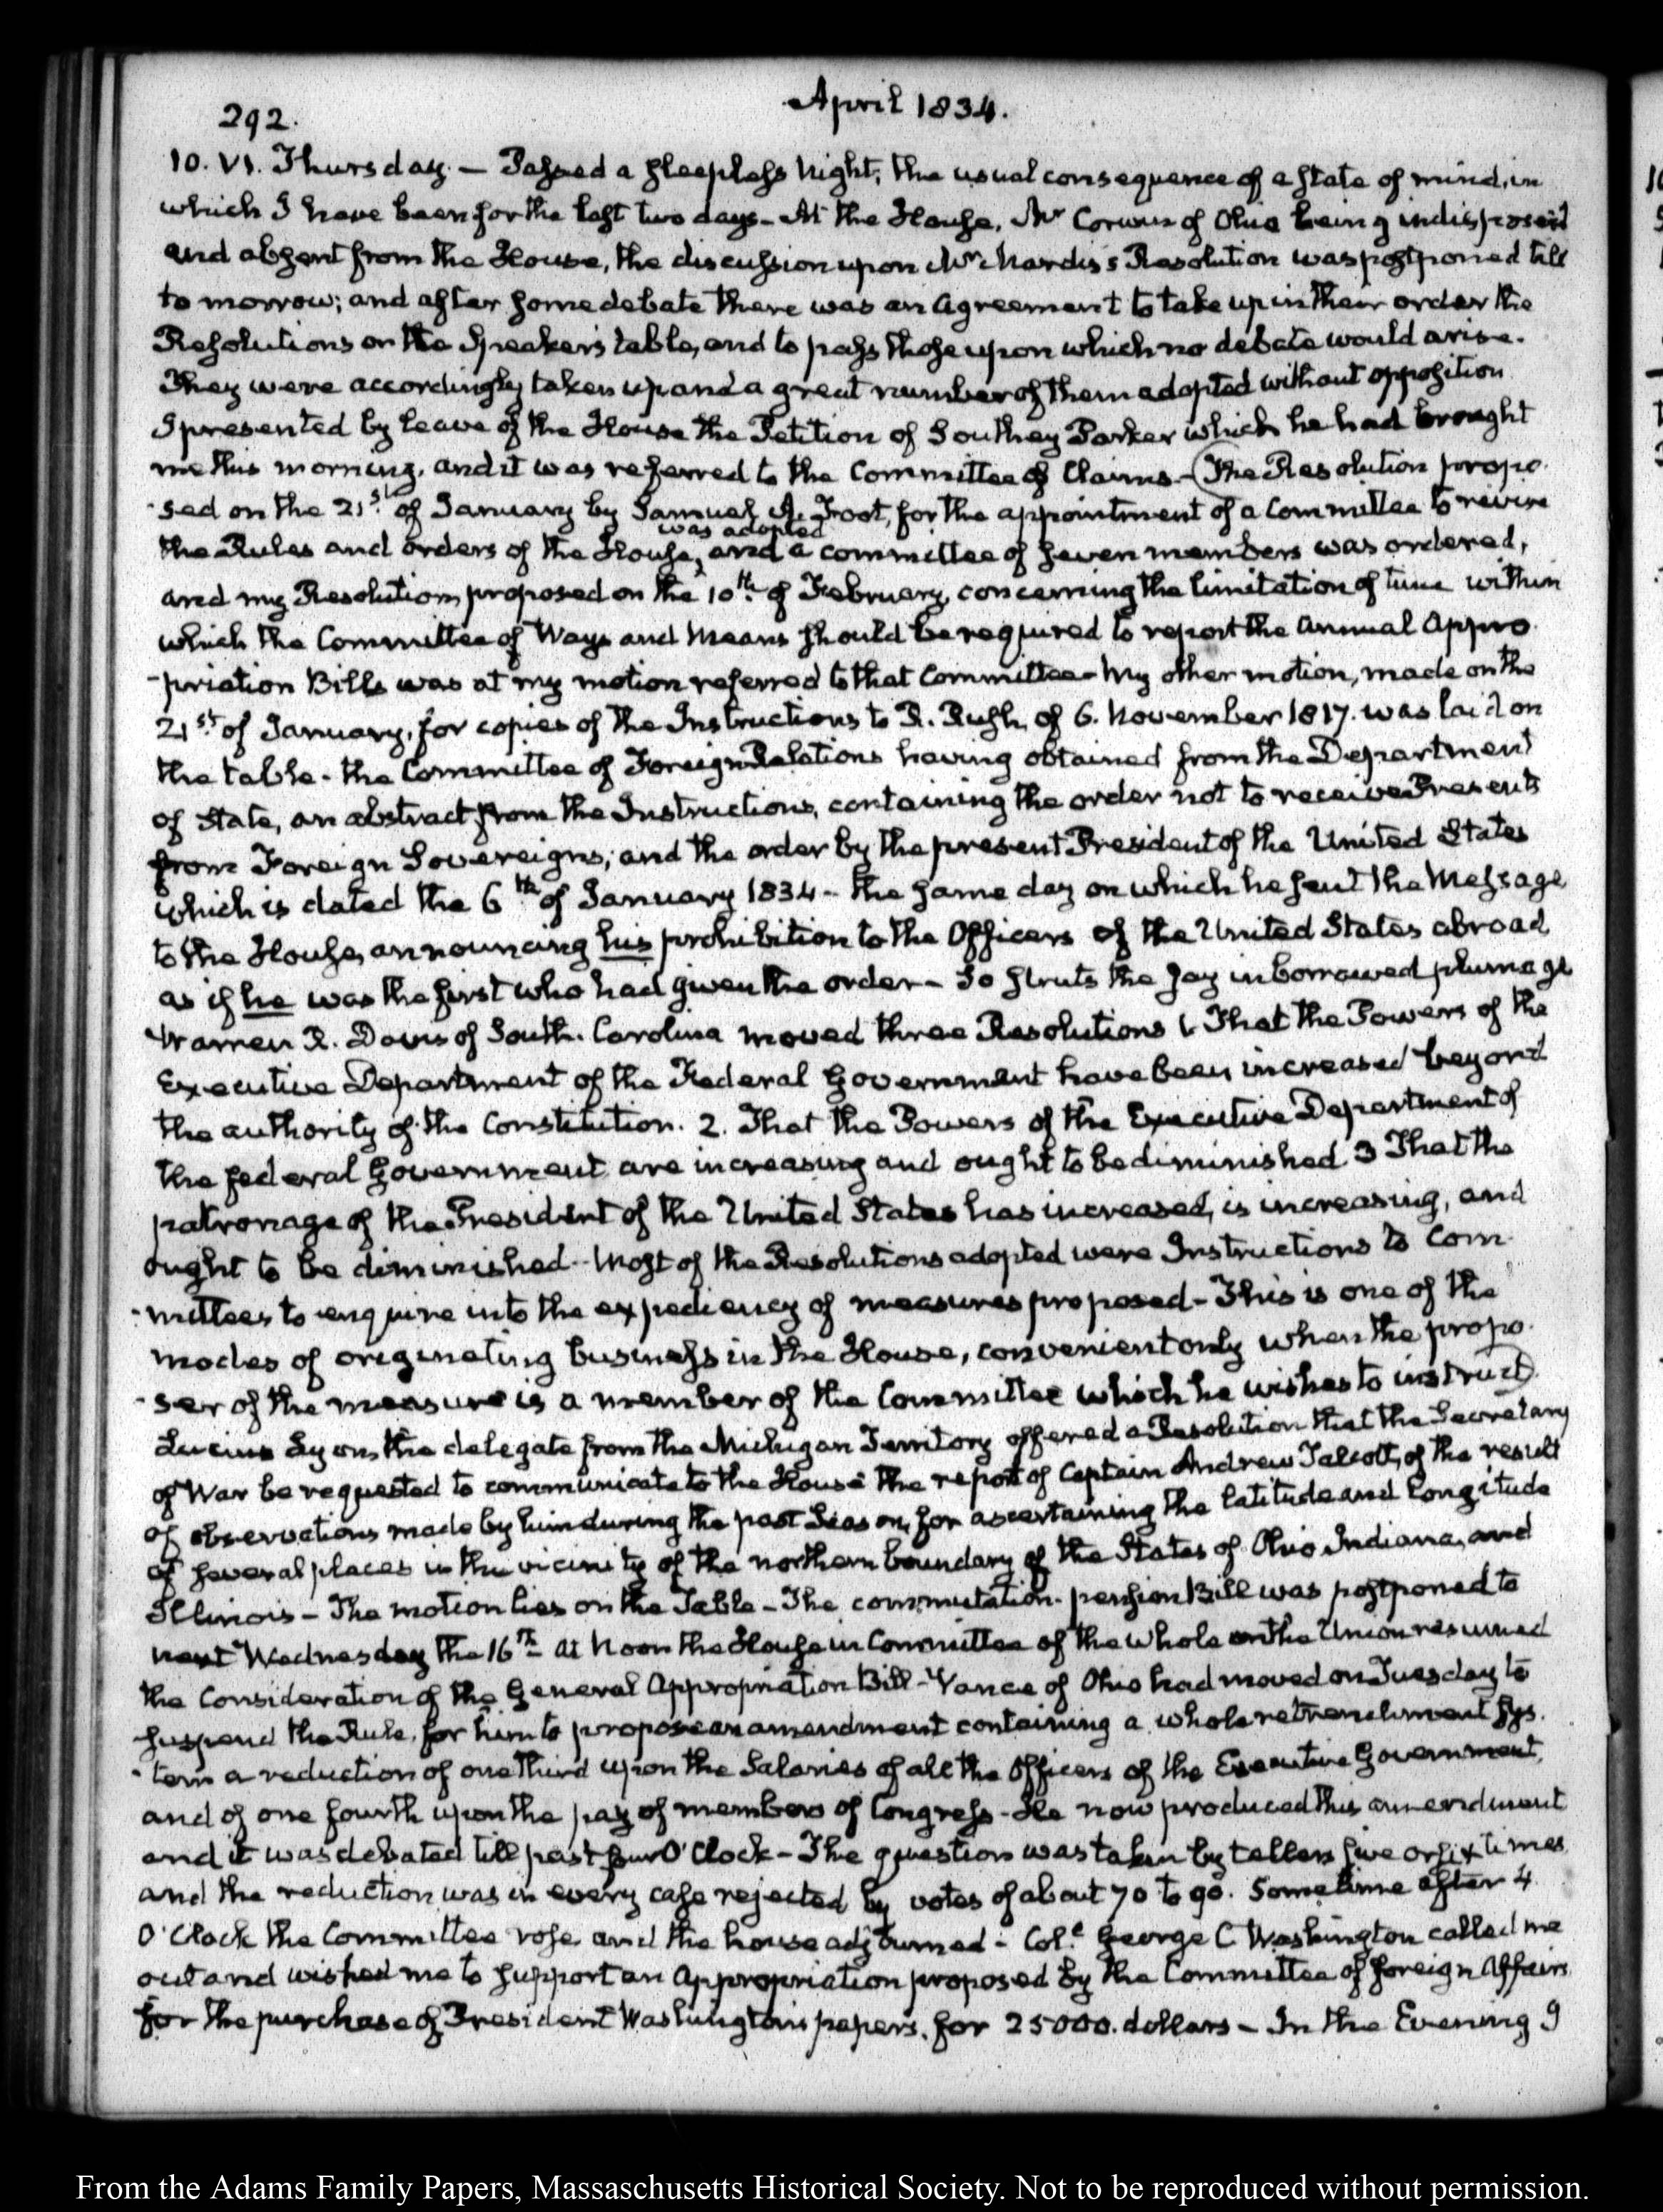 292.
April 1834.
10. VI. Thursday. — Passed a sleepless night; the usual consequence of a state of mind, in
which I have been for the last two days - At the House, Mr Corwin of Ohio being indisposed
and absent from the House, the discussion upon Mr Mardis's Resolution was postponed till
to morrow; and after some debate there was an agreement to take up in their order the
Resolutions on the Speaker's table, and to pass those upon which no debate would arise.
They were accordingly taken up and a great number of them adopted without opposition
I presented by leave of the House the Petition of Southey Parker which he had brought
me this morning, and it was referred to the Committee of Claims - (The Resolution propo-
-sed on the 21st of January by Samuel A. Foot, for the appointment of a Committee to revise
was adopted
the Rules and orders of the House, and a committee of seven members was ordered,
and my Resolution, proposed on the 10th of February, concerning the limitation of time within
which the Committee of Ways and Means should be required to report the annual Appro-
-priation Bills was at my motion referred to that Committee - My other motion, made on the
21st of January, for copies of the Instructions to R. Rush, of 6. November 1817. was laid on
the table - the Committee of Foreign Relations having obtained from the Department
of State, an abstract from the Instructions, containing the order not to receive Presents
from Foreign Sovereigns; and the order by the present President of the United States
which is dated the 6th of January 1834 - the same day on which he sent the Message
to the House, announcing his prohibition to the Officers of the United States abroad
as if he was the first who had given the order - So struts the Jay in borrowed plumage
Warren R. Davis of South-Carolina moved three Resolutions 1. That the Powers of the
Executive Department of the Federal Government have been increased beyond
the authority of the Constitution. 2. That the Powers of the Executive Department of
the federal Government are increasing and ought to be diminished 3 That the
patronage of the President of the United States has increased, is increasing, and
ought to be diminished - Most of the Resolutions adopted were Instructions to Com-
-mittees to enquire into the expediency of measures proposed - This is one of the
modes of originating business in the House, convenient only when the propo-
-ser of the measure is a member of the Committee which he wishes to instruct)
Lucius Lyon, the delegate from the Michigan Territory offered a Resolution that the Secretary
of War be requested to communicate to the House the report of Captain Andrew Talcott, of the result
of observations made by him during the past Season, for ascertaining the latitude and longitude
of several places in the vicinity of the northern boundary of the States of Ohio Indiana, and
Illinois - The motion lies on the Table - The commutation-pension Bill was postponed to
next Wednesday the 16th at Noon the House in Committee of the whole on the Union resumed
the Consideration of the General Appropriation Bill - Vance of Ohio had moved on Tuesday to
suspend the Rule, for him to propose an amendment containing a whole retrenchment sys-
-tem a reduction of one third upon the Salaries of all the Officers of the Executive Government,
and of one fourth upon the pay of members of Congress - He now produced this amendment
and it was debated till past four O'Clock - The question was taken by tellers five or six times
and the reduction was in every case rejected by votes of about 70 to 90. Sometime after 4
O'Clock the Committee rose, and the house adjourned - Col.l George C Washington called me
out and wished me to support an Appropriation proposed by the Committee of foreign Affairs
for the purchase of President Washington's papers, for 25000. dollars - In the Evening I
From the Adams Family Papers, Massachusetts Historical Society. Not to be reproduced without permission.